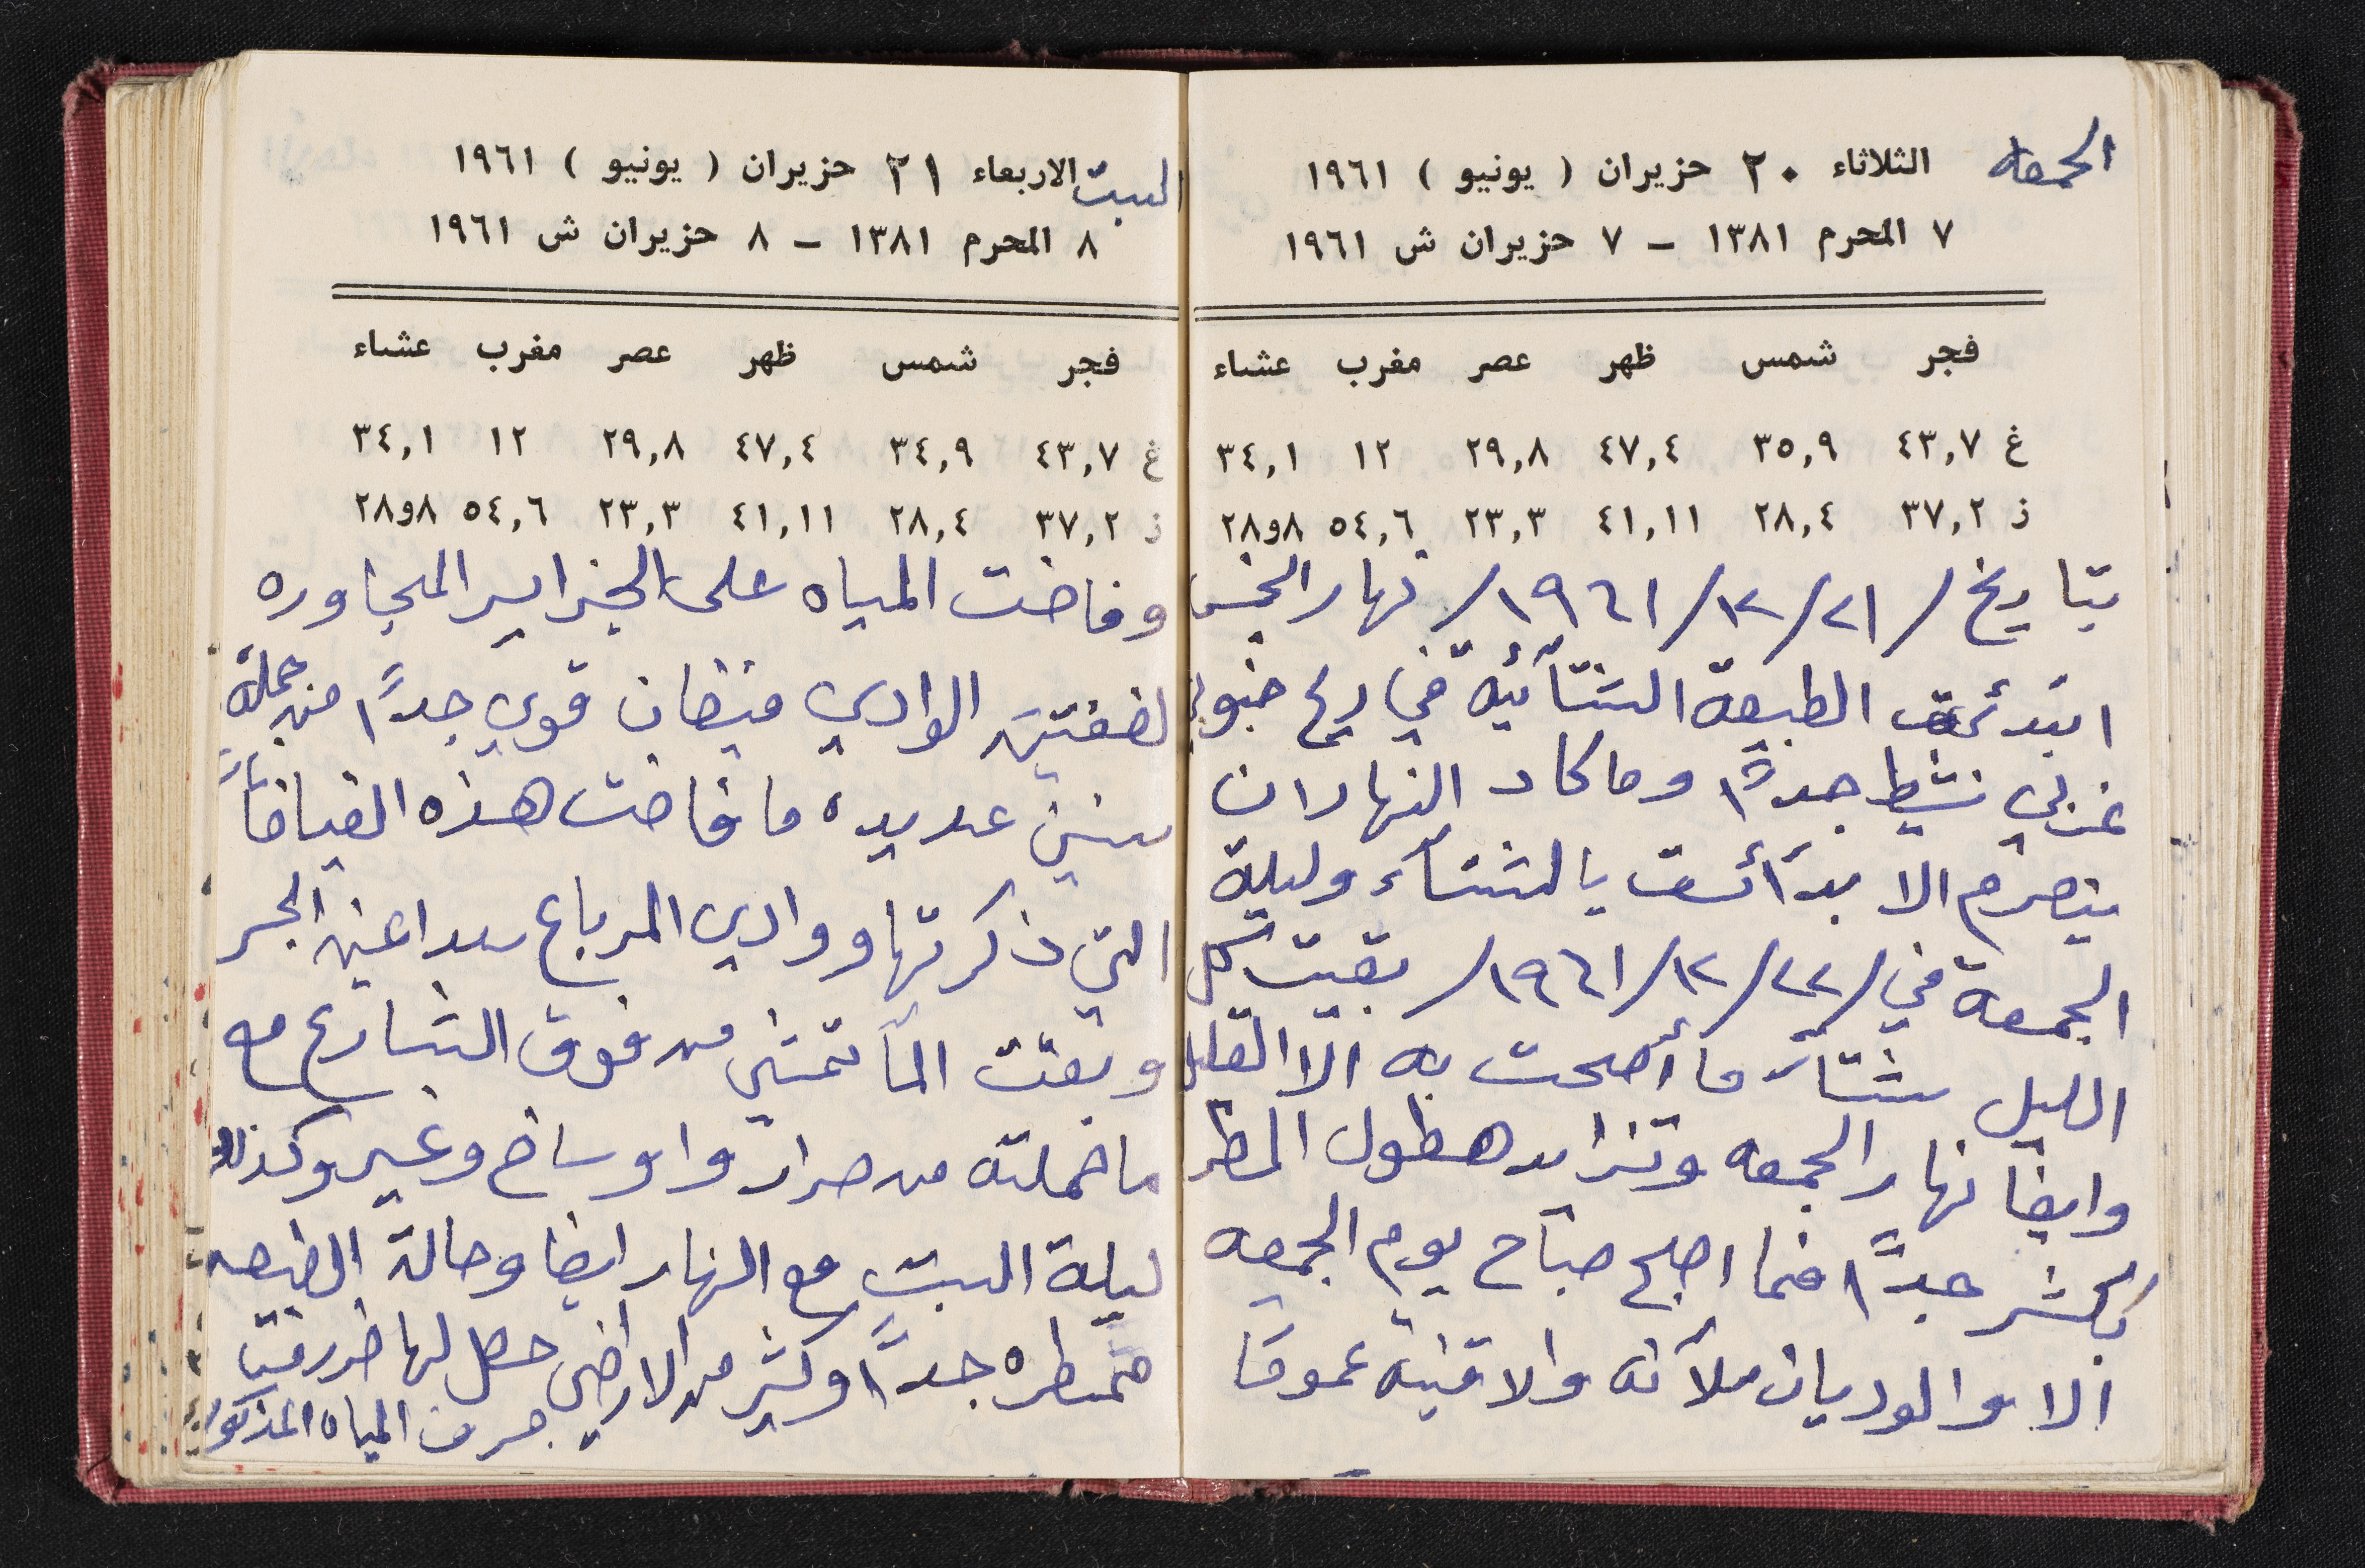 الجمعه
الثلاثاء ٢٠ حزيران ( يونيو ) ١٩٦١
٧ المحرم ١٣٨١ – ٧ حزيران ش ١٩٦١
فجر شمس ظهر عصر مغرب عشاء
غ ٤٣,٧ ٣٥,٩ ٤٧,٤ ٢٩,٨ ١٢ ٣٤,١
ز ٣٧,٢ ٢٨,٤ ٤١,١١ ٢٣,٣ ٥٤,٦ ٨و٢٨
بتاريخ /٢١/١٢/١٩٦١/ نهار الخميس
ابتدئت الطبيعة الشتائية في ريح جنوبي
غربي نشيط جداً وما كاد النهار ان
ينصرم الا بدأت بالشتاء وليلة
الجمعة في /٢٢/١٢/١٩٦١/ بقيت كل
الليل شتاء ما أصحت به الا القليل
وايضا نهار الجمعه وتزايد هطول المطر
بكثر جداً فما اصبح صباح يوم الجمعه
الا والوديان ملآنه والاقنية عموما
السبت
الاربعاء ٢١ حزيران ( يونيو ) ١٩٦١
٨ المحرم ١٣٨١ – ٨ حزيران ش ١٩٦١
فجر شمس ظهر عصر مغرب عشاء
غ ٤٣,٧ ٣٤,٩ ٤٧,٤ ٢٩,٨ ١٢ ٣٤,١
ز ٣٧,٢ ٢٨,٤ ٤١,١١ ٢٣,٣ ٥٤,٦ ٨و٢٨
وفاضت المياه على الجزاير المجاوره
لضفتين الوادي فيضان قوي جداً من جملة
سنين عديده ما فاضت هذه الفياضات
التي ذكرتها ووادي المرباع سدا عين الجسر
وبقت الما تمشي من فوق الشارع مع
ما حملته من صرار واوساخ وغير وكذلك
ليلة السبت مع النهار ايضا وحالة الطبيعه
ممطره جداً وكثير من الاراضي حصل لها ضرر من
جرف المياه المذكوره